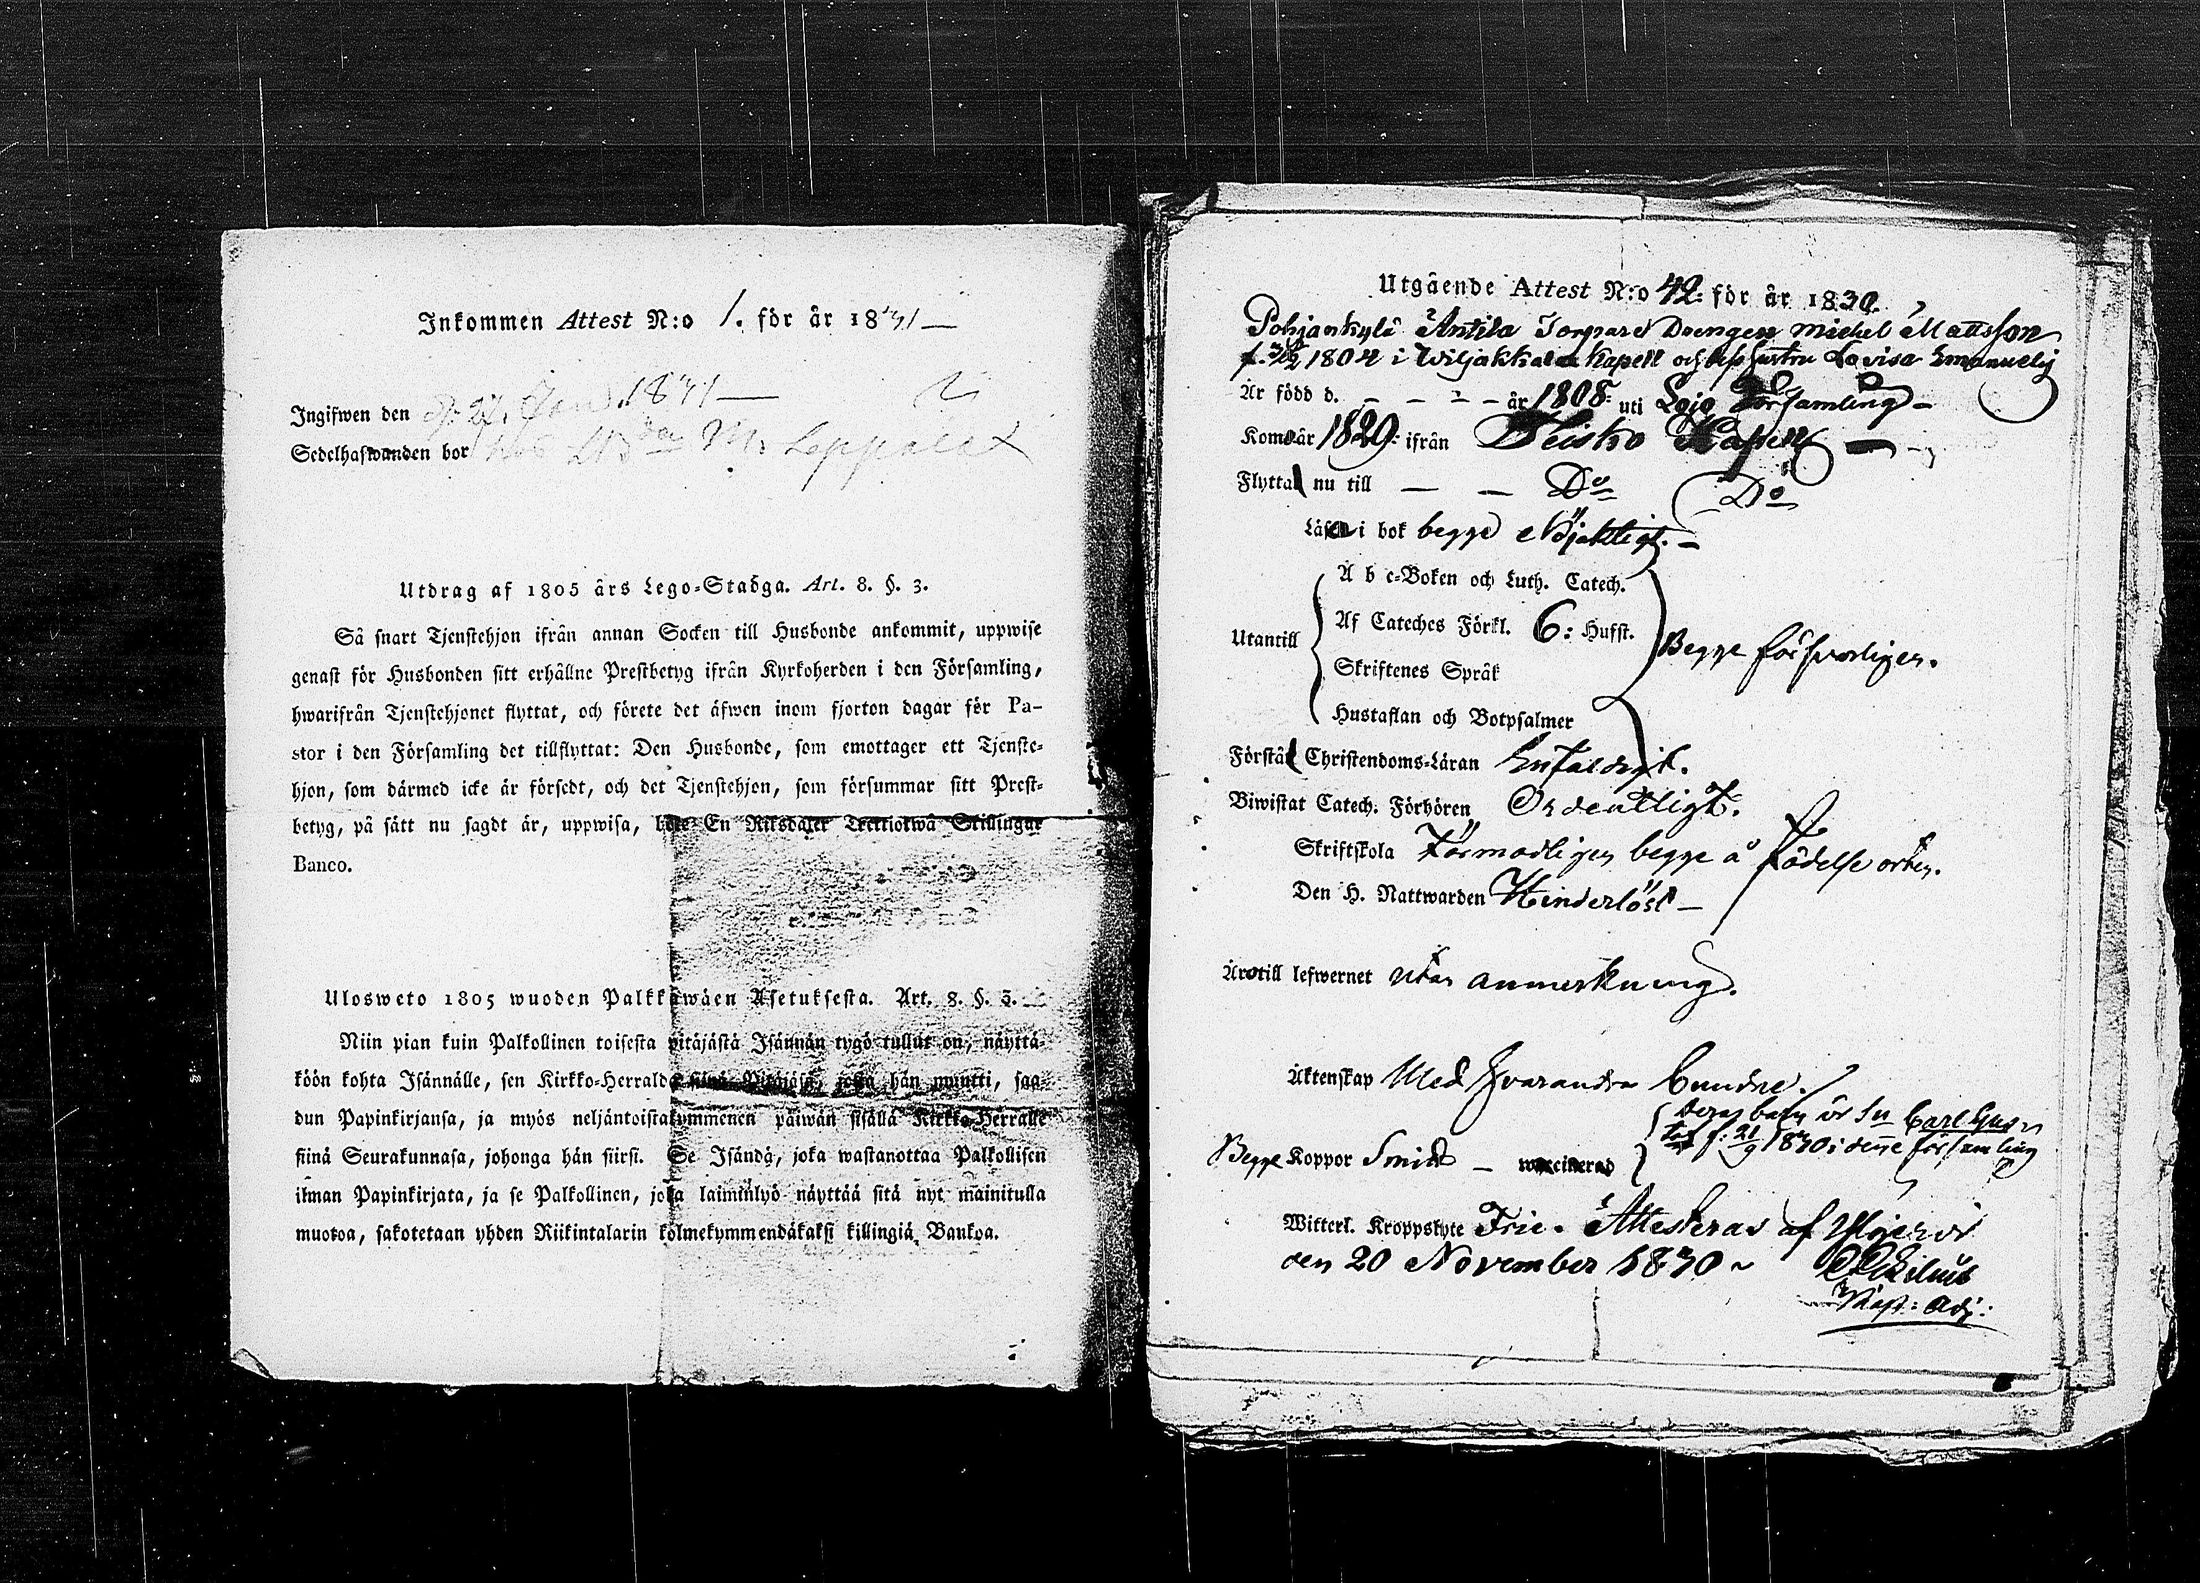 Inkommen Attest N:o 1. för år 1831 —
Ingifwen den d. 27. Jan. 1831 —
Sedelhafwanden bor hos
Utdrag af 1805 års Lego-Stadga. Art. 8. §. 3.
Så snart Tjenstehjon ifrån annan Socken till Husbonde ankommit, uppwise
genast för Husbonden sitt erhållne Prestbetyg ifrån Kyrkoherden i den Församling,
hwarifrån Tjenstehjonet flyttat, och förete det äfwen inom fjorton dagar för Pa-
stor i den Församling det tillflyttat: Den Husbonde, som emottager ett Tjenste-
hjon, som därmed icke är försedt, och det Tjenstehjon, som försummar sitt Prest-
betyg, på sätt nu sagdt är, uppwisa, böte En Riksdaler Trettiotwå Skillingar
Banco.
Ulosweto 1805 wuoden Palkkawäen Asetuksesta. Art. 8. §. 3.
Niin pian kuin Palkollinen toisesta pitäjästä Isännän tygö tullut on, näyttä-
köön kohta Isännälle, sen Kirkko-Herralda siinä Pitäjäsä, josta hän muutti, saa-
dun Papinkirjansa, ja myös neljäntoistakymmenen päiwän sisällä Kirkko-Herralle
siinä Seurakunnasa, johonga hän siirsi. Se Isändä, joka wastanottaa Palkollisen
ilman Papinkirjata, ja se Palkollinen, joka laiminlyö näyttää sitä nyt mainitulla
muotoa, sakotetaan yhden Riikintalarin kolmekymmendäkaksi killingiä Bankoa.
Utgående Attest N:o 42: för år 1830.
Pohjankylä Antila Torpare Drengen Michel Mattsson
f. 1804 i Wiljakkala Kapell och Hustru Lovisa Emanuelsj
Är född d. — — — år 1808: uti Lojo Församling —
Komo år 1829: ifrån Teisko Kapell —
Flytta nu till — — Do Do
Läsa i bok begge Nöjaktligt. —
A b c-Boken och Luth. Catech.
Utantill Af Cateches Förkl. 6: Hufst. Begge försvarligen.
Skriftenes Språk
Hustaflan och Botpsalmer
Förstå Christendoms-Läran Enfaldigt.
Biwistat Catech. Förhören Ordentligt.
Skriftskola Förmodligen begge å födelse orten.
Den H. Nattwarden Hinderlöst —
Äro till lefwernet utan anmerkning.
Äktenskap Med hvarandra bundne.
Deras barn är Sn Carl Gus-
taf f: 21/9 1830 i denne församling
Begge Koppor — waccinerad
Witterl. Kroppslyte Frie. Attesteras af Ylöjervi
den 20 November 1830 ~
Kap: Adj: